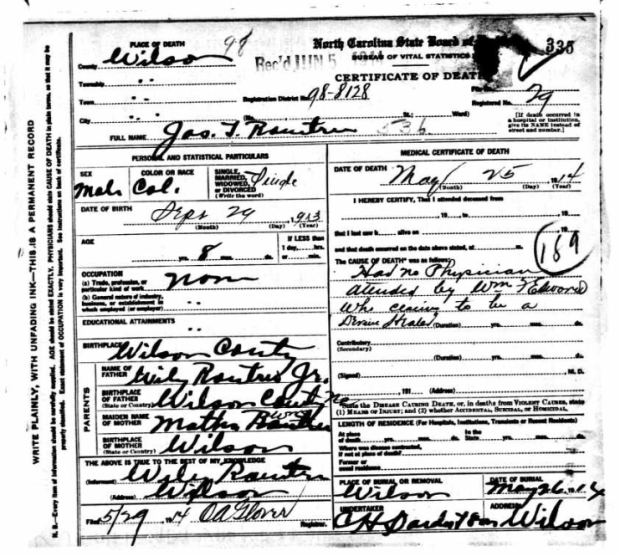 WRITE PLAINLY, WITH UNFADING INK—THIS IS A PERMANENT RECORD
N. B.—Every item of information should be carefully supplied. AGE should be stated EXACTLY. PHYSICIANS should state CAUSE OF DEATH in plain terms, so that it may be
properly classified. Exact statement of OCCUPATION is very important. See instructions on back of certificate.
PLACE OF DEATH 98
County Wilson
Township " "
Town " "
City " "
North Carolina State Board of
335
BUREAU OF VITAL STATISTICS
Rec'd JUN 5
CERTIFICATE OF DEATH
Registration District No. 98-8128
Registered No. 29
(No. St.; Ward)
[If death occurred in
a hospital or institution,
give its NAME instead of
street and number.]
FULL NAME Jas. T. Rountree 536
PERSONAL AND STATISTICAL PARTICULARS
SEX Male
COLOR OR RACE Col.
SINGLE, MARRIED, WIDOWED, OR DIVORCED (Write the word) Single
DATE OF BIRTH Sept 29, 1913
(Month) (Day) (Year)
AGE yrs. 8 mos. ds.
If LESS than 1 day, hrs. or min.
OCCUPATION
(a) Trade, profession, or particular kind of work None
(b) General nature of industry, business, or establishment in which employed (or employer) " "
EDUCATIONAL ATTAINMENTS " "
BIRTHPLACE Wilson County
PARENTS
NAME OF FATHER Wily Rountree Jr.
BIRTHPLACE OF FATHER (State or Country) Wilson County
MAIDEN NAME OF MOTHER
BIRTHPLACE OF MOTHER (State or Country) Wilson
THE ABOVE IS TRUE TO THE BEST OF MY KNOWLEDGE
(Informant) Wily Rountree
(Address) Wilson
Filed 5/29 14 Glover
Registrar
MEDICAL CERTIFICATE OF DEATH
DATE OF DEATH May 25, 1914
(Month) (Day) (Year)
I HEREBY CERTIFY, That I attended deceased from
, 19 , to , 19
that I last saw h alive on , 19
and that death occurred on the date above stated, at m.
The CAUSE OF DEATH* was as follows: 189
Had no Physician
attended by Wm
Who claims to be a
Devine Healer (Duration) yrs. mos. ds.
Contributory (Secondary)
(Duration) yrs. mos. ds.
(Signed) M. D.
, 191 (Address)
*State the DISEASE CAUSING DEATH, or, in deaths from VIOLENT CAUSES, state
(1) MEANS OF INJURY; and (2) whether ACCIDENTAL, SUICIDAL, or HOMICIDAL.
LENGTH OF RESIDENCE (For Hospitals, Institutions, Transients or Recent Residents)
At place of death yrs. mos. ds. In the State yrs. mos. ds.
Where was disease contracted, if not at place of death?
Former or usual residence
PLACE OF BURIAL OR REMOVAL Wilson
DATE OF BURIAL May 26, 1914
UNDERTAKER C H
ADDRESS Wilson